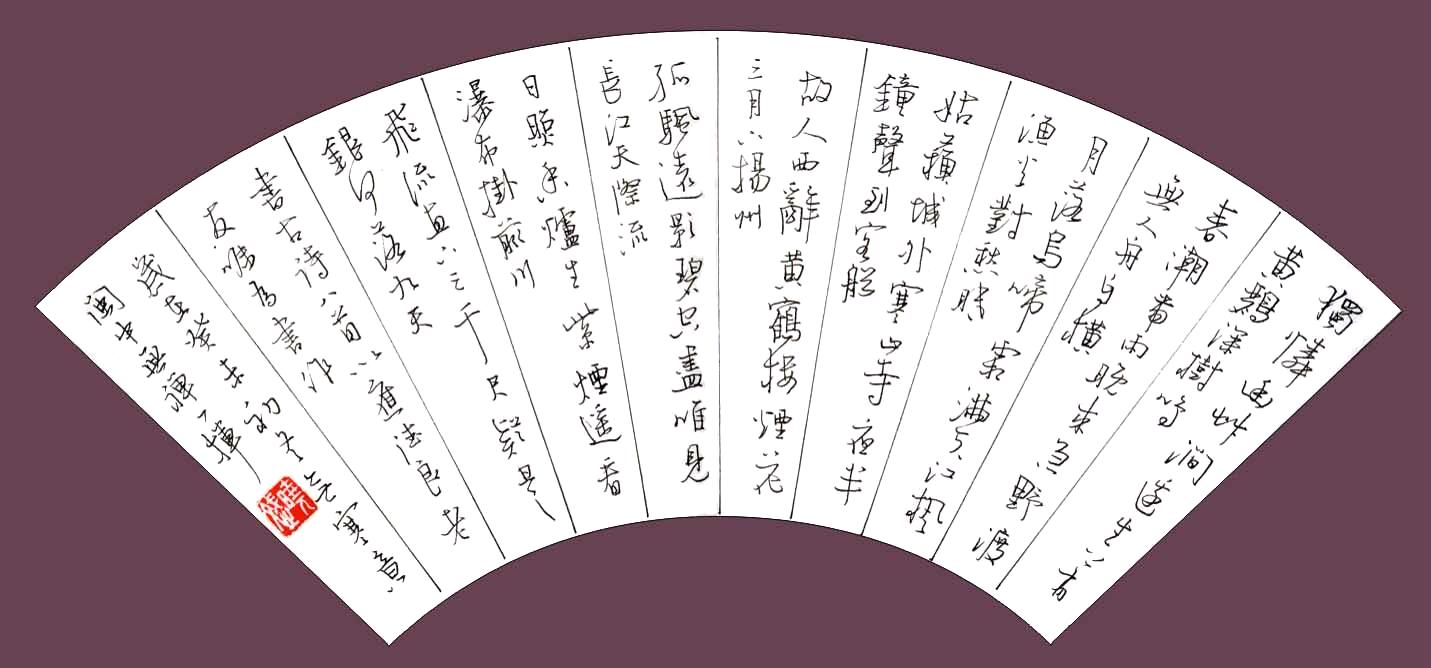 獨憐幽艸澗邊生上有
黃鸝深樹鳴
春潮帶雨晚來急野渡
無人舟自橫
月落烏啼霜滿天江楓
漁火對愁眠
姑蘓城外寒山寺夜半
鐘聲到客船
故人西辭黃鶴樓煙花
三月下揚州
孤颿遠影碧空盡唯見
長江天際流
日照香爐生紫煙遙看
瀑布掛前川
飛流直下三千尺疑是
銀河落九天
書古詩八首以應法良老
友囑為書作
歲在癸未初冬寒意
閩中無禪子樺